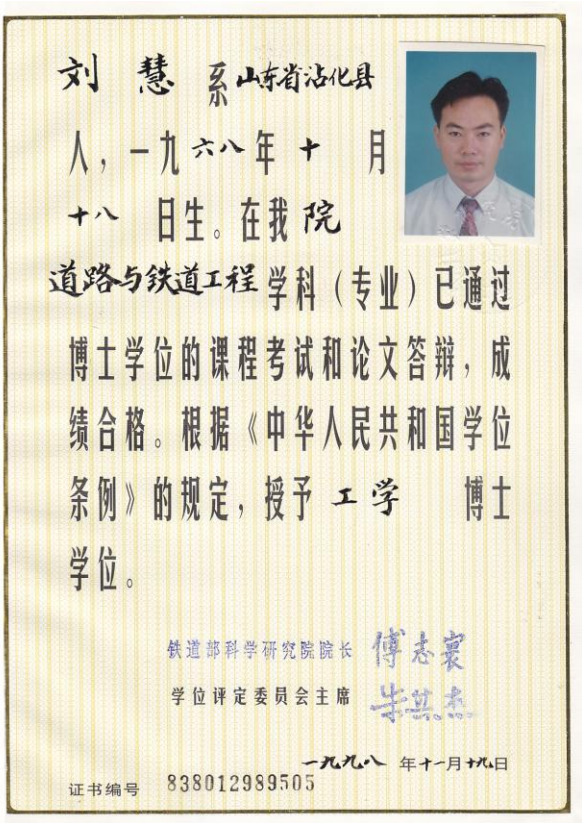 刘慧系山东省沾化县
人，一九六八年十月
十八日生。在我院
道路与铁道工程学科（专业）已通过
博士学位的课程考试和论文答辩，成
绩合格。根据《中华人民共和国学位
条例》的规定，授予工学博士
学位。
铁道部科学研究院院长 傅志寰
学位评定委员会主席 朱其杰
一九九八年十一月十九日
证书编号 838012989505